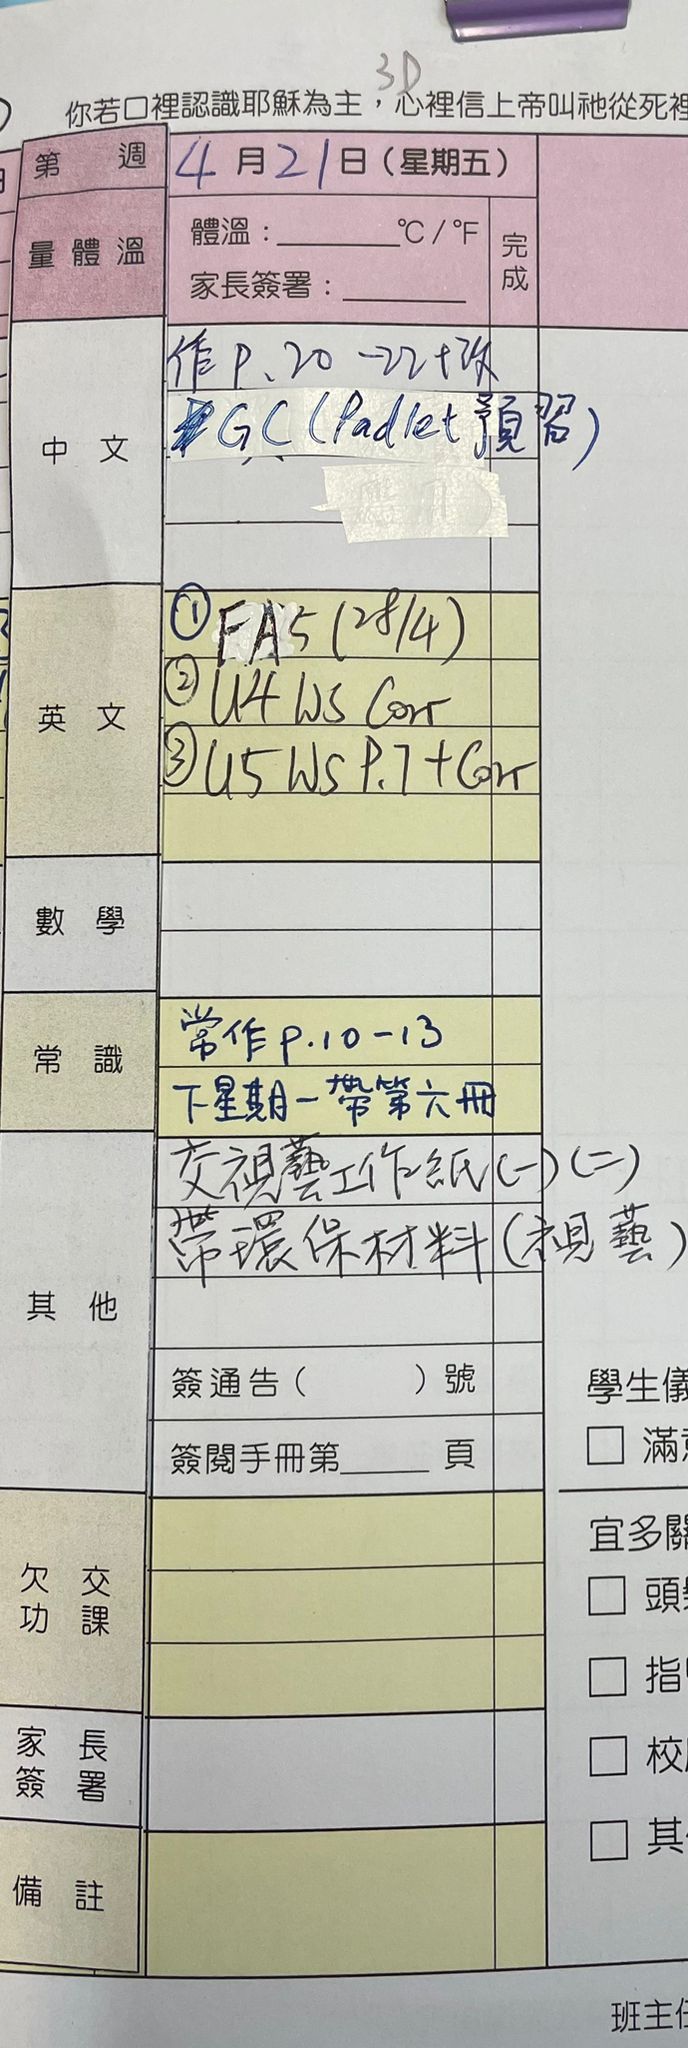 3D
你若口裡認識耶穌為主，心裡信上帝叫祂從死裡
第 週
4月21日(星期五)
量體溫
體溫：______℃/℉
家長簽署：______
完成
中文
作P.20-22+改
GC(Padlet預習)
英文
① FA5(28/4)
② U4 WS Corr
③ U5 WS P.7+Corr
數學
常識
常作p.10-13
下星期一帶第六冊
其他
交視藝工作紙(一)(二)
帶環保材料(視藝)
簽通告( )號
簽閱手冊第____頁
欠交功課
家長簽署
備註
學生儀
□ 滿意
宜多關
□ 頭髮
□ 指甲
□ 校
□ 其
班主任